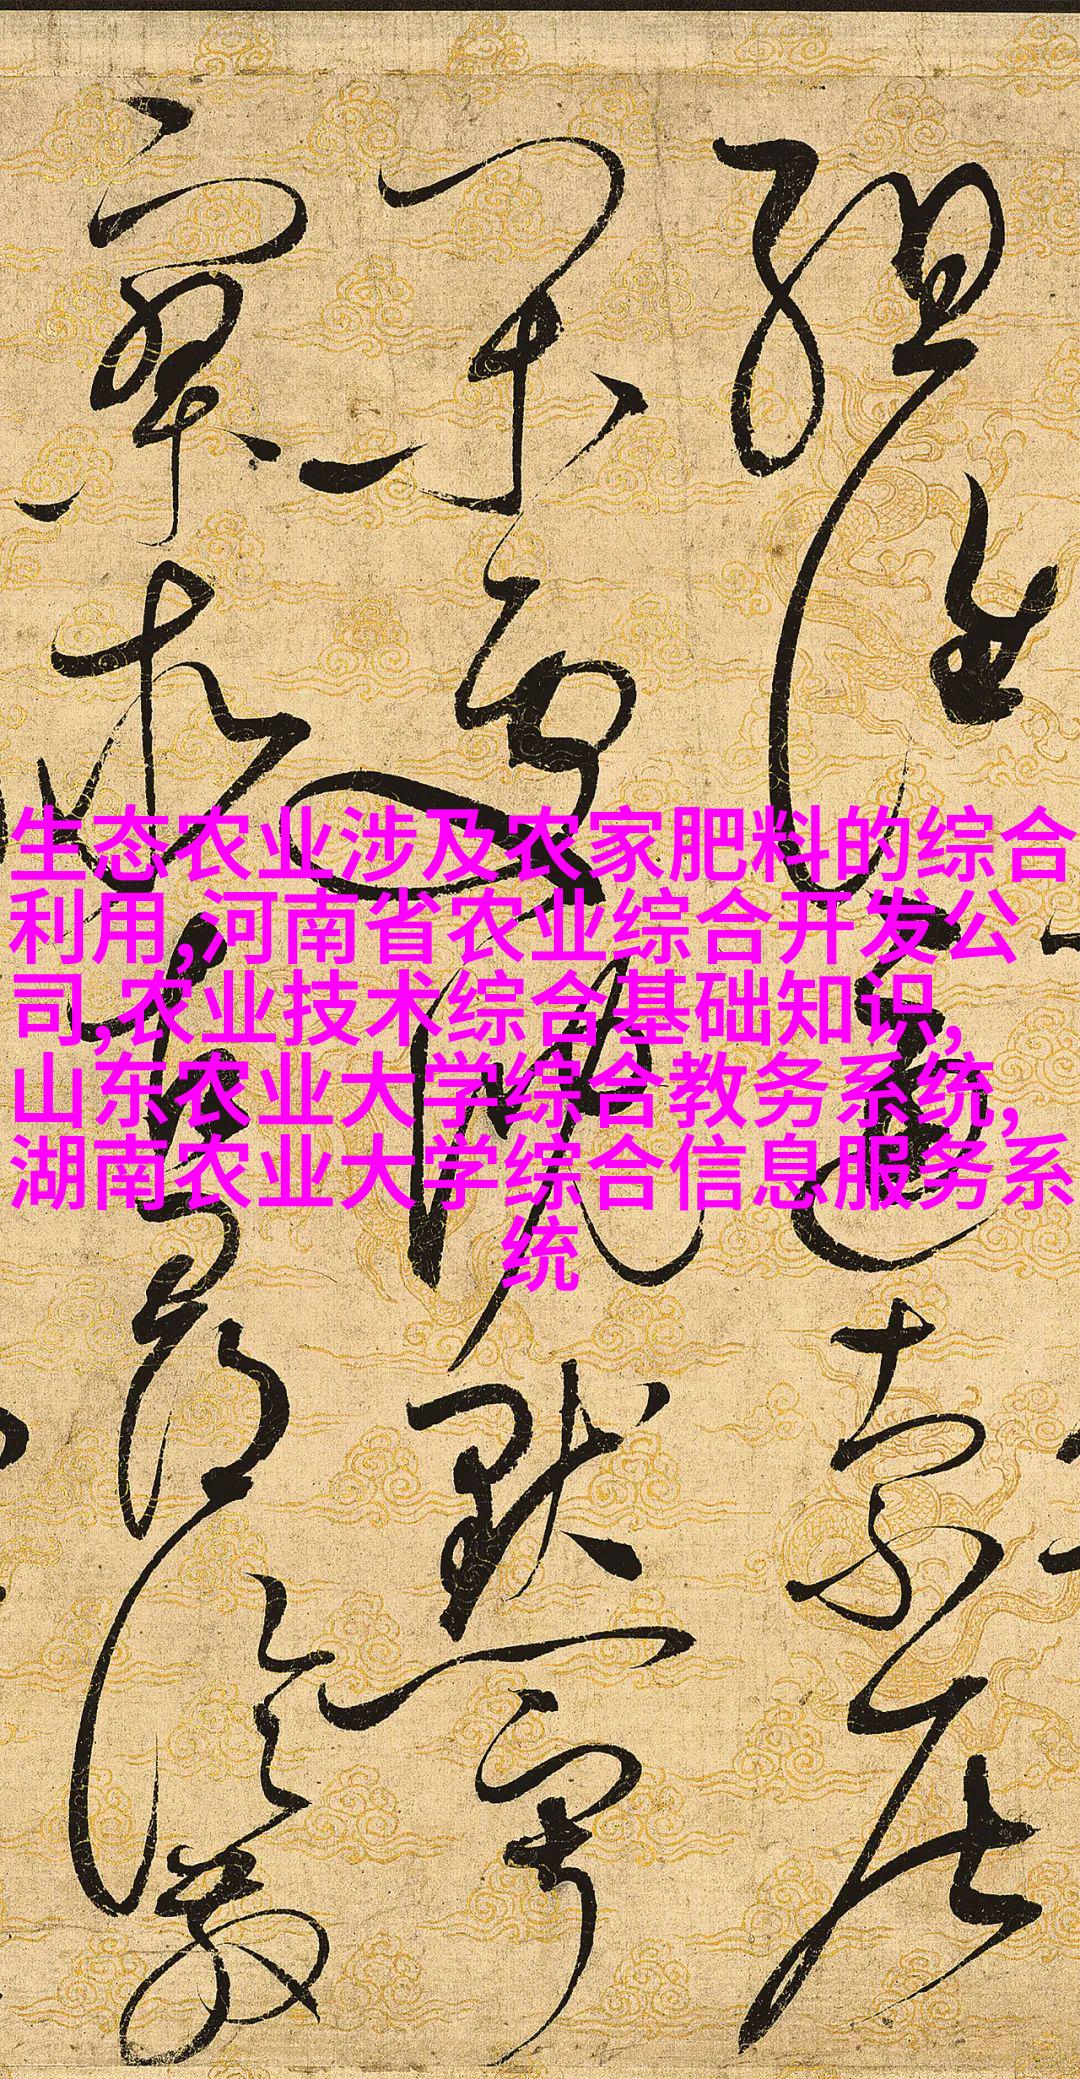 生态农业涉及农家肥料的综合
利用,河南省农业综合开发公
司,农业技术综合基础知识,
山东农业大学综合教务系统,
湖南农业大学综合信息服务系
统
組誰逼索居
閑處沉默寂
寥求古尋論